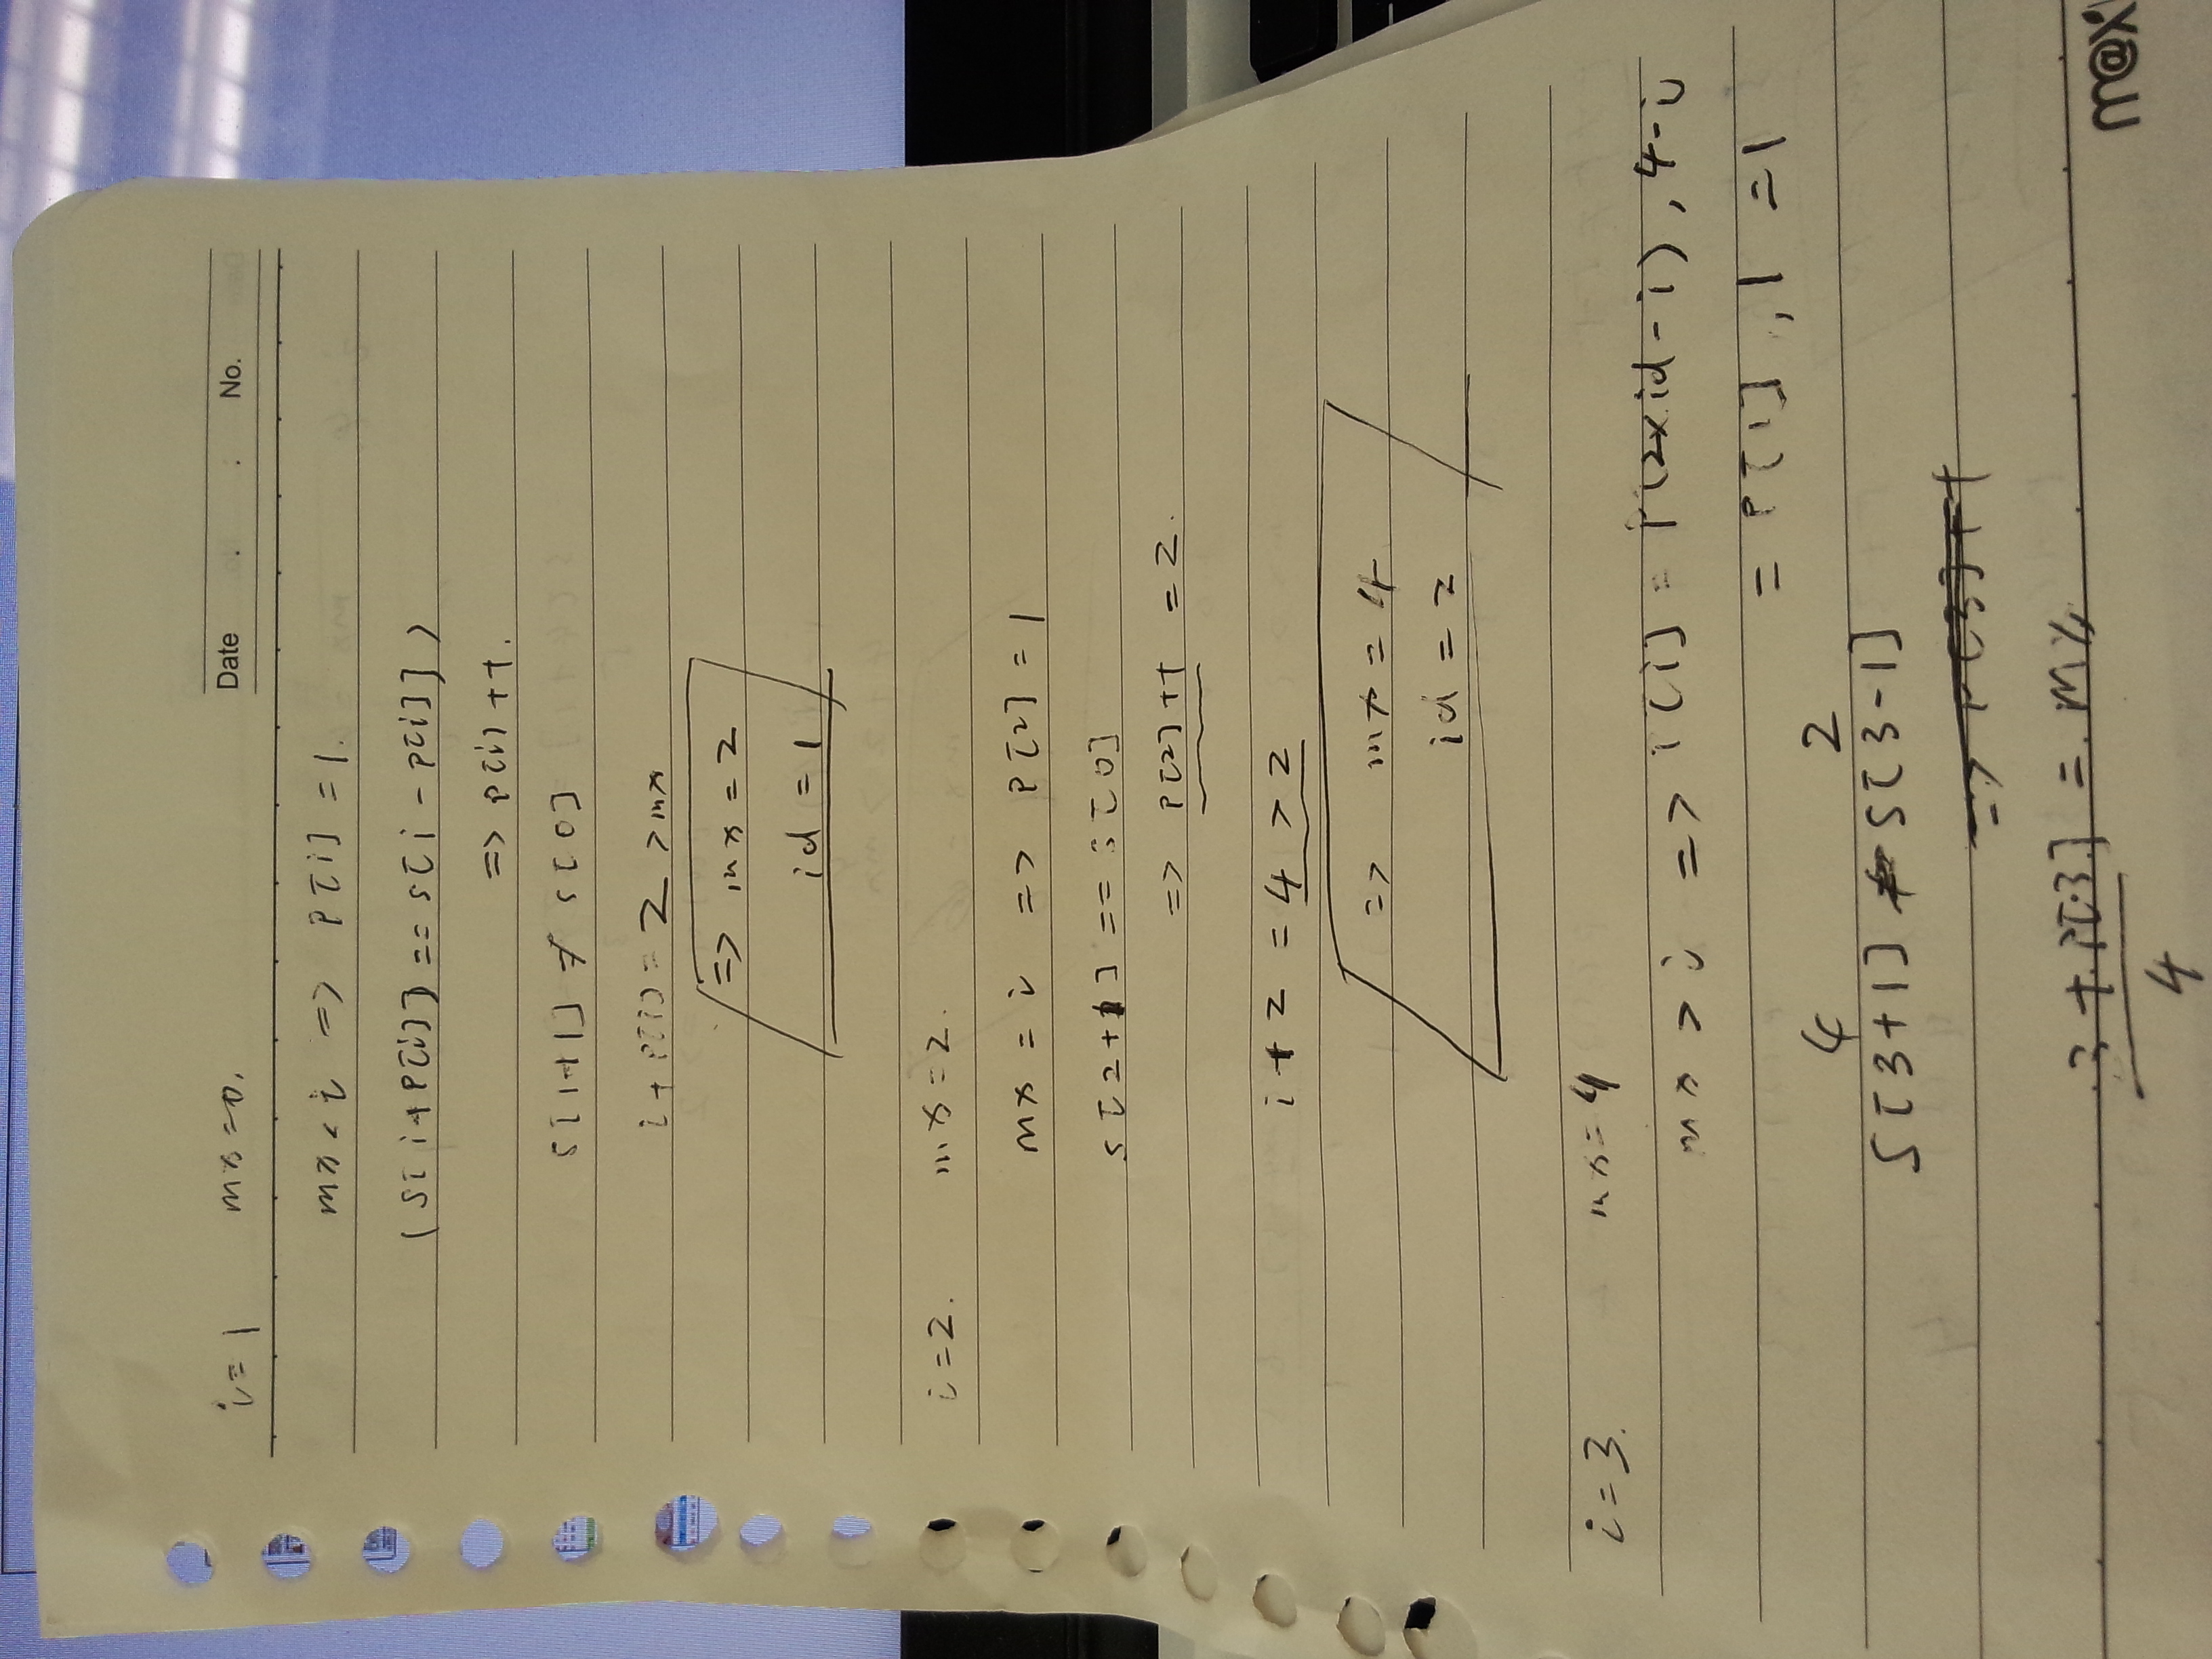 Date . : No.
i=1 mx=0.
mx<i => P[i]=1.
(S[i+P[i]]==S[i-P[i]])
=> P[i]++.
S[1+1] ≠ S[0]
i+P[i]=2 >mx
=> mx=2
id=1
i=2. mx=2.
mx=i => P[2]=1
S[2+1]==S[0]
=> P[2]++ =2.
i+2=4>2
=> mx=4
id=2
i=3. mx=4
mx>i => P[i]=P(2×id-i),4-i
=P[1],1=1
4 2
S[3+1] ≠ S[3-1]
=> P[3]++
3+P[3]=mx
4
m@x